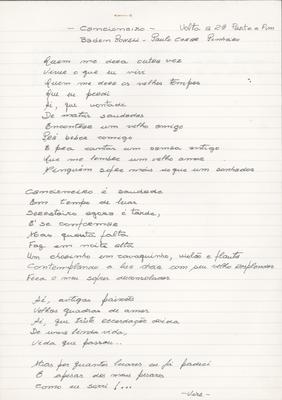 - Cancioneiro - Volta a 2ª Parte e Fim
Baden Powell - Paulo Cesar Pinheiro
Quem me dera outra vez
Viver o que eu vivi
Quem me dera os velhos tempos
Que eu perdi
Ai, que vontade
De matar saudades
Encontrar um velho amigo
Pra beber comigo
E pra cantar um samba antigo
Que me lembre um velho amor
Ninguém sofre mais do que um sonhador
Cancioneiro é saudade
Em tempo de luar
Seresteiro agora é tarde,
É se conformar
Mas quanta falta
Faz em noite alta
Um chorinho em cavaquinho, violão e flauta
Contemplando a luz das com seu velho
Fere o meu sofrer
Ai, antigas paixões
Velhas quadras de amor
Ai, que triste recordação doida
De uma linda vida,
Vida que passou...
Mas por quantos luares eu já padeci
E apesar dos meus pesares
Como eu sorri!...
- Vire -